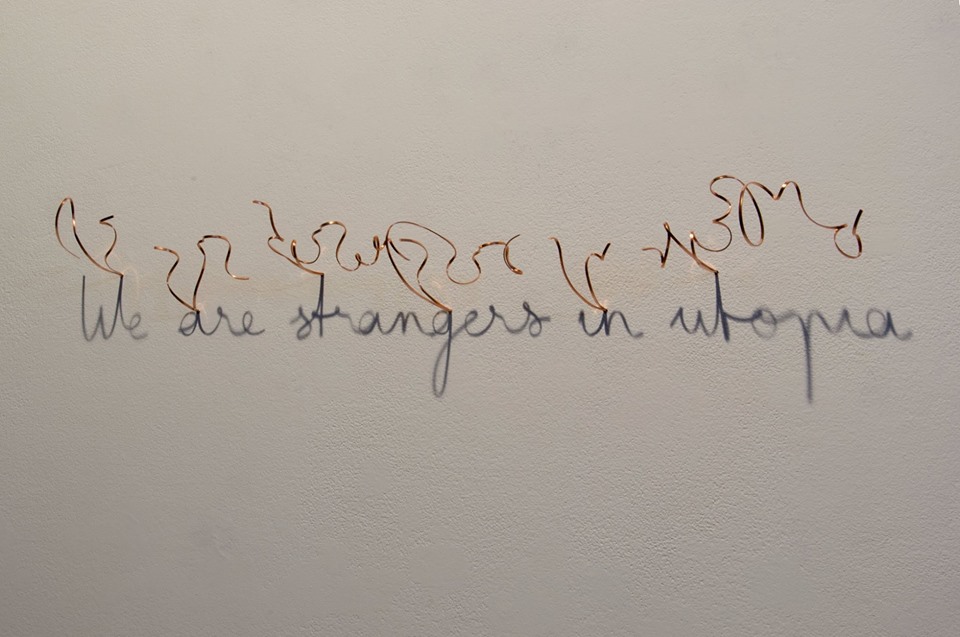 We are strangers in utopia